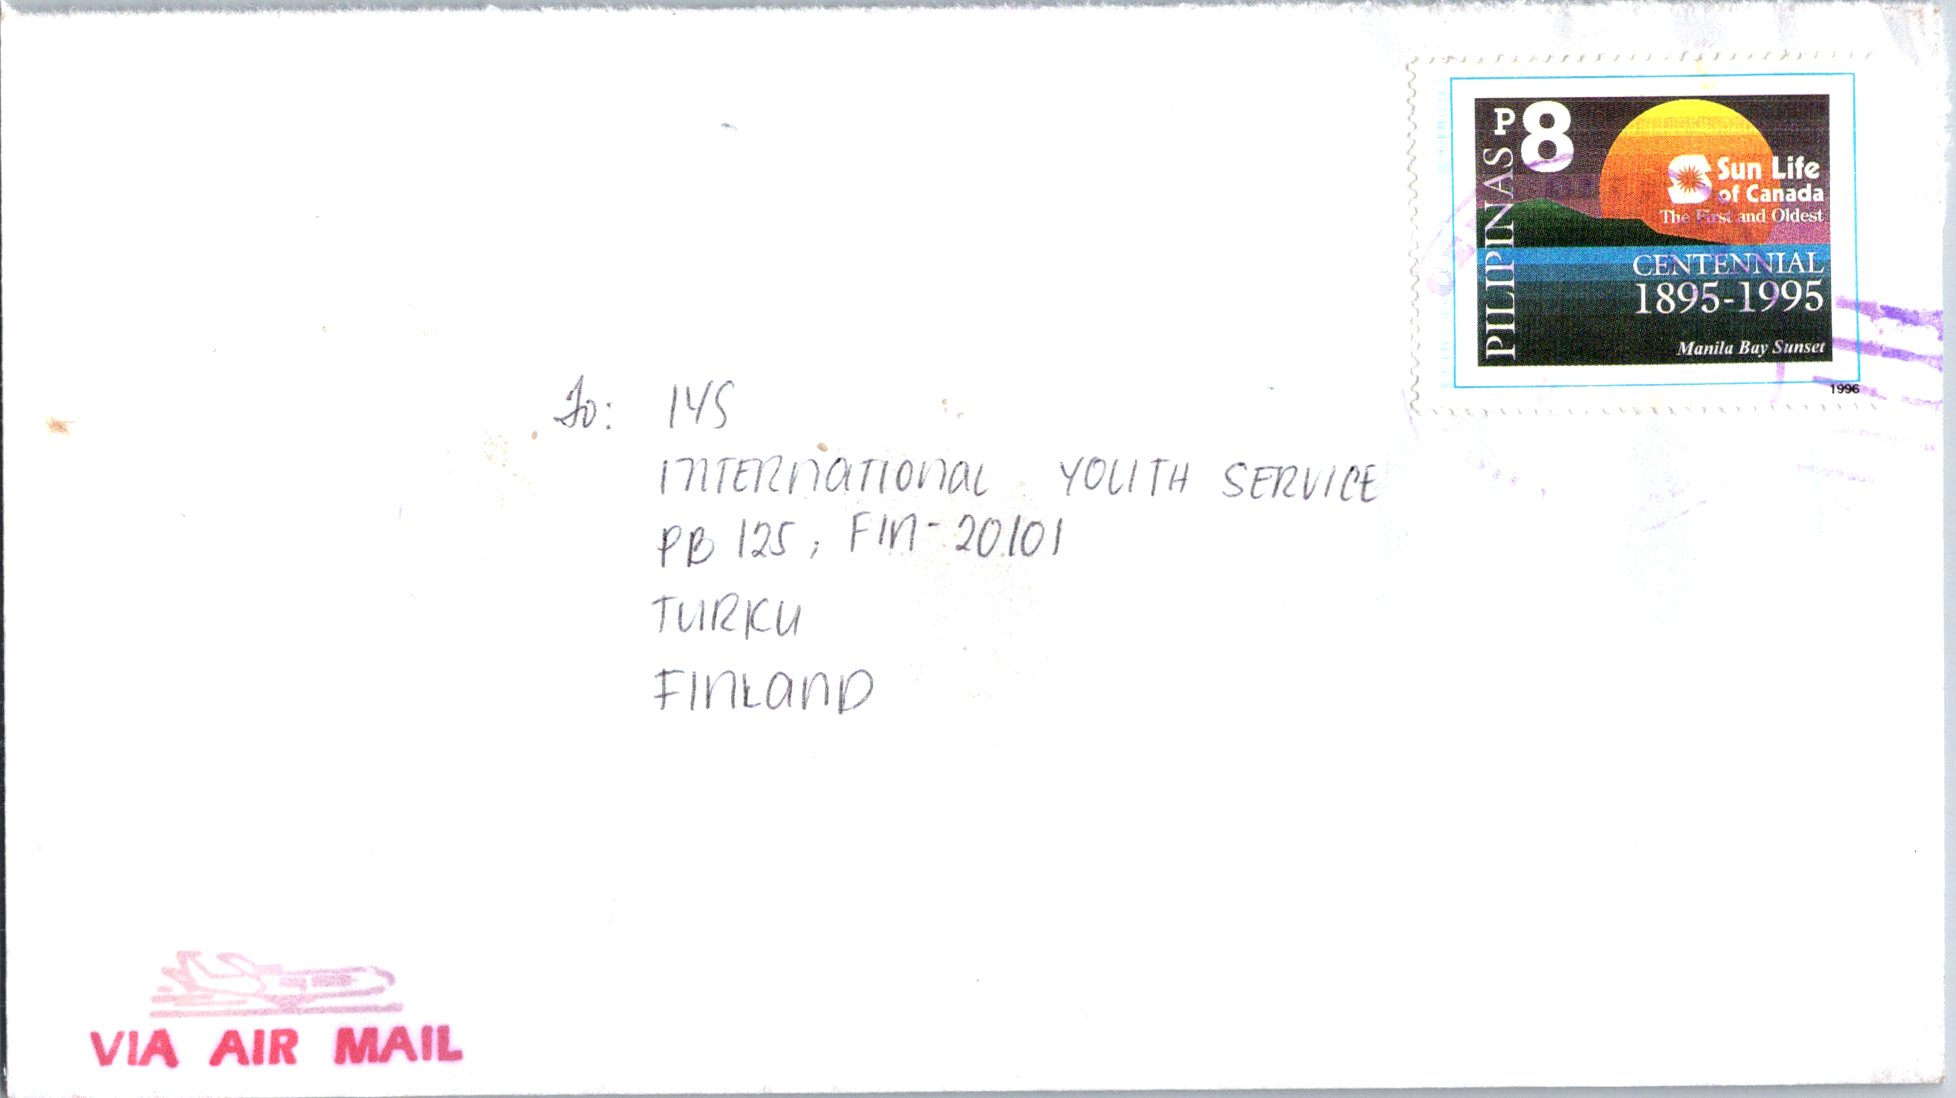 PILIPINAS P8
Sun Life
of Canada
The First and Oldest
CENTENNIAL
1895-1995
Manila Bay Sunset
1996
To: IYS
INTERNATIONAL YOUTH SERVICE
PB 125, FIN-20101
TURKU
FINLAND
VIA AIR MAIL